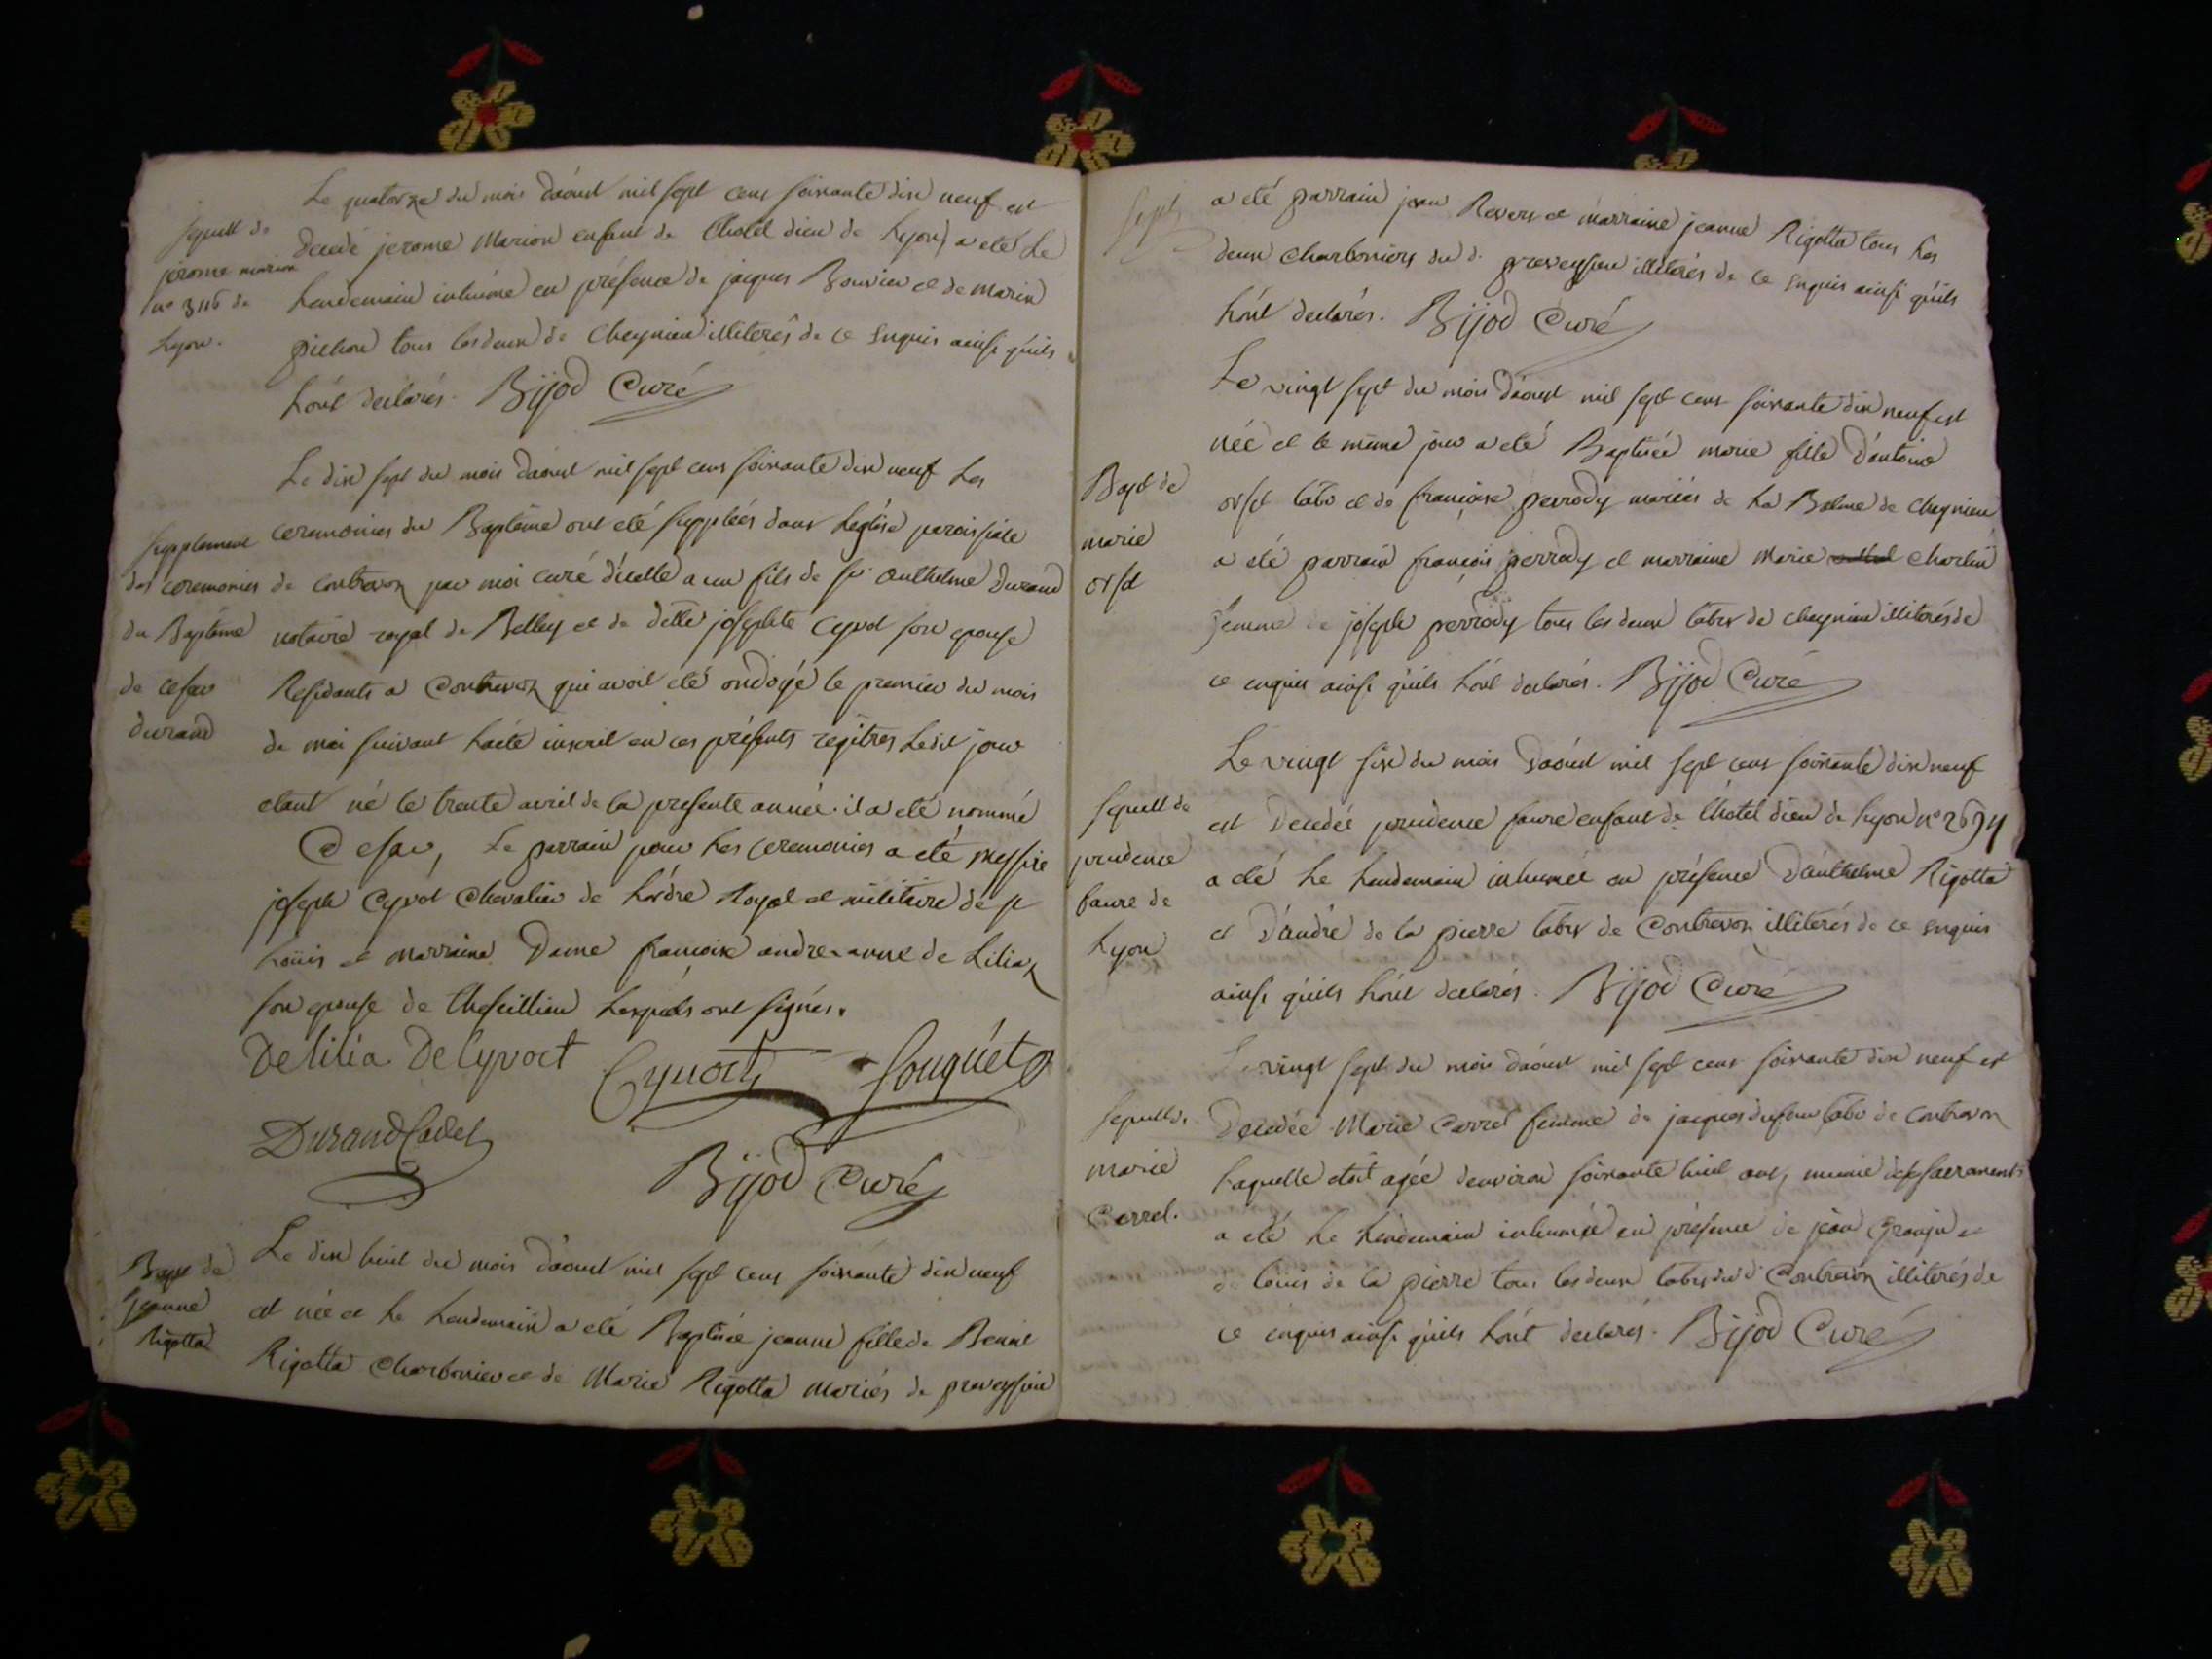 Sepult de
jérome marion
n° 3116 de
Lyon.
Le quatorze du mois d'aöust mil sept cens soixante dix neuf est
decedé jerome Marion enfant de l'hotel dieu de Lyon, a eté Le
Lendemain inhumé en présence de jacques Bouvier et de Marin
pichon tous les deux de Cheynieu illiterés de ce Enquis ainsi qu'ils
L'ont declarés. Bijod Curé
Supplement
des ceremonies
du Baptême
de cesar
durand
Le dix sept du mois d'aöust mil sept cens soixante dix neuf Les
ceremonies du Baptême ont eté suppléés dans L'eglise paroissiale
de contrevoz par moi curé d'icelle a un fils de sr anthelme Durand
notaire royal de Belley et de delle josephte Cyvot son epouse
Residants a Contrevoz qui avoit eté ondoyé le premier du mois
de mai suivant L'acte inscrit en ces présents regitres Ledit jour
etant né le trente avril de la presente année. il a eté nommé
Cesar, Le parrain pour Les ceremonies a eté Messire
joseph Cyvot Chevalier de L'ordre Royal et militaire de st
Loüis et Marraine Dame françoise andre-anne de Liliaz
son epouse de Cheseillieu Lesquels ont signés.
De lilia De Cyvoct Cyvoct fouquet
Durand Cadet
Bijod Curé
Bapt de
Jeanne
Rigotta
Le dix huit du mois d'aöust mil sept cens soixante dix neuf
est née et Le Lendemain a eté Baptisée jeanne fille de Benoit
Rigotta Charbonier et de Marie Rigotta mariés de preveyssieu
a eté parrain jean Revers et marraine jeanne Rigotta tous Les
deux charboniers du d. preveyssieu illiterés de ce Enquis ainsi qu'ils
L'ont declarés. Bijod Curé
Bapt de
marie
orset
Le vingt sept du mois d'aöust mil sept cens soixante dix neuf est
née et le même jour a eté Baptisée marie fille d'antoine
orset labr et de françoise perrody mariés de La Balme de Cheynieu
a eté parrain françois perrody et marraine Marie Charlin
femme de joseph perrody tous les deux labrs de cheynieu illiterés de
ce enquis ainsi qu'ils L'ont declarés. Bijod Curé
Sepult de
prudence
faure de
Lyon
Le vingt six du mois d'aöust mil sept cens soixante dix neuf
est Decedée prudence faure enfant de L'hotel dieu de Lyon n°
a eté Le Lendemain inhumée en présence d'anthelme Rigotta
et d'andré de la pierre labrs de Contrevoz illiterés de ce Enquis
ainsi qu'ils L'ont declarés. Bijod Curé
Sepult de
Marie
Carrel.
Le vingt sept du mois d'aöust mil sept cens soixante dix neuf est
Decedée Marie Carrel femme de jacques dufour labr de contrevoz
Laquelle etoit agée d'environ soixante huit ans, munie des sacrements
a eté Le Lendemain inhumée en présence de jean Granju et
de Loüis de la pierre tous les deux labrs du d. Contrevoz illiterés de
ce enquis ainsi qu'ils L'ont declarés. Bijod Curé